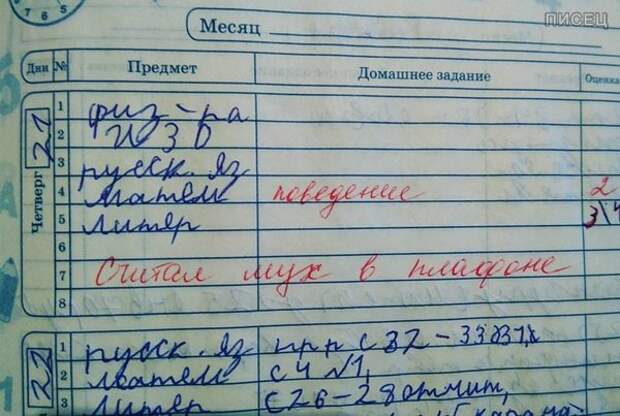 7 6 5
ПИСЕЦ
Месяц
Дни № Предмет Домашнее задание Оценка
Четверг 21
1 физ-ра
2 ИЗО
3 русск. яз
4 матем поведение 2
5 литер 3\4
6
7 Считал мух в плафоне
8
22
1 русск. яз с 32-33
2 матем с 4 №1,
3 литер с 26-28 отчит,